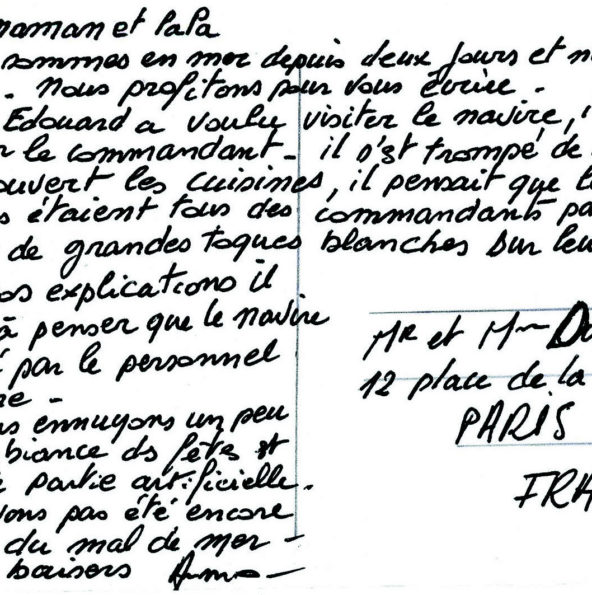 maman et PaPa
sommes en mer depuis deux jours et n
. Nous profitons pour vous écrire -
Edouard a voulu visiter le navire,
r le commandant - il s'est trompé de
ouvert les cuisines, il pensait que l
s étaient tous des commandants pa
de grandes toques blanches sur leu
os explications il
à penser que le navire
par le personnel
re -
s ennuyons un peu
biance ds fêtes et
partie artificielle.
vons pas été encore
du mal de mer -
baisers
Mr et Mme Du
12 place de la
PARIS
FRA